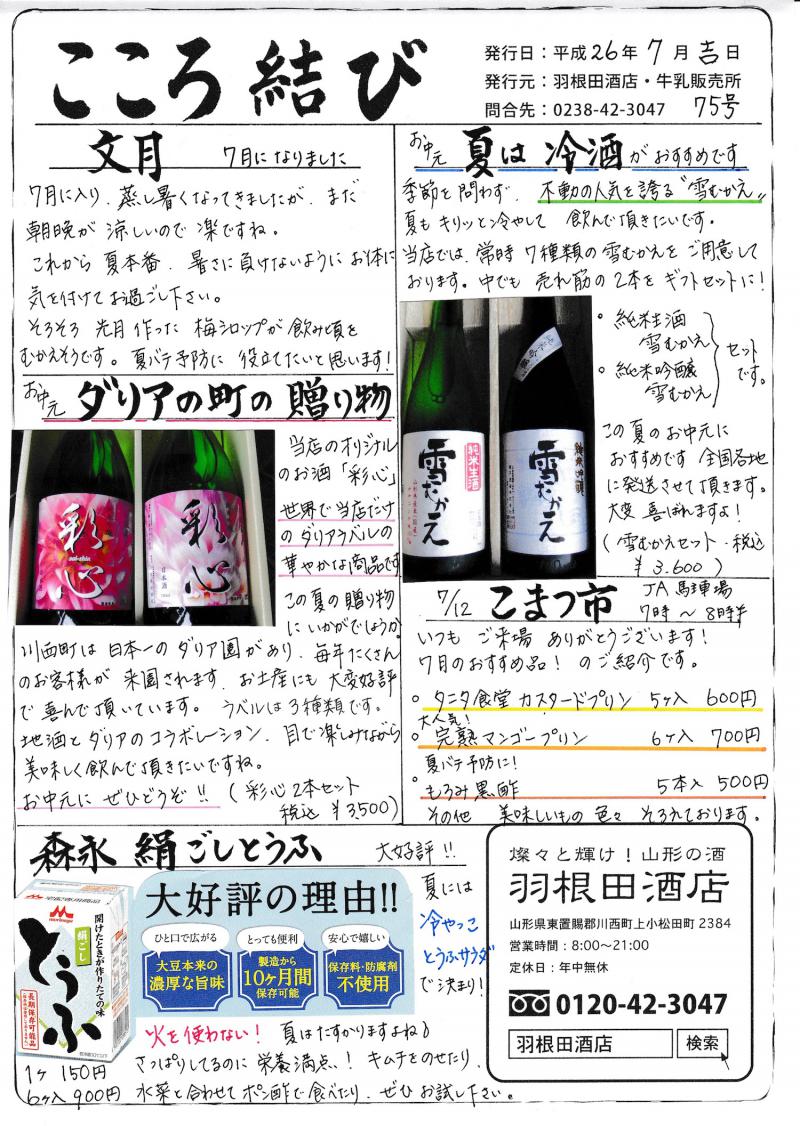 こころ結び
発行日：平成26年7月吉日
発行元：羽根田酒店・牛乳販売所
問合先：0238-42-3047 75号
文月 7月になりました
7月に入り、蒸し暑くなってきましたが、まだ
朝晩が涼しいので楽ですね。
これから夏本番、暑さに負けないようにお体に
気を付けてお過ごし下さい。
そろそろ先月作った梅シロップが飲み頃を
むかえそうです。夏バテ予防に役立てたいと思います!
お中元 ダリアの町の贈り物
当店のオリジナル
のお酒「彩心」
世界で当店だけ
のダリアラベルの
華やかな商品です
この夏の贈り物
にいかがでしょうか。
彩心
sai-shin
彩心
日本酒
川西町は日本一のダリア園があり、毎年たくさん
のお客様が来園されます。お土産にも大変好評
で喜んで頂いています。ラベルは3種類です。
地酒とダリアのコラボレーション、目で楽しみながら
美味しく飲んで頂きたいですね。
お中元にぜひどうぞ!! (彩心2本セット
税込 ¥3,500)
お中元 夏は冷酒がおすすめです
季節を問わず、不動の人気を誇る"雪むかえ"
夏もキリッと冷やして飲んで頂きたいです。
当店では、常時7種類の雪むかえをご用意して
おります。中でも売れ筋の2本をギフトセットに!
純米生酒
雪むかえ
純米吟醸
雪むかえ
雪むかえ
純米生酒
雪むかえ
純米吟醸
セット
です。
この夏のお中元に
おすすめです 全国各地
に発送させて頂きます。
大変喜ばれますよ!
(雪むかえセット・税込
¥3.600)
7/12 こまつ市 JA馬車場
7時～8時半
いつもご来場ありがとうございます!
7月のおすすめ品! のご紹介です。
タニタ食堂 カスタードプリン 5ヶ入 600円
大人気!
完熟マンゴープリン 6ヶ入 700円
夏バテ予防に!
もろみ黒酢 5本入 500円
その他 美味しいもの色々そろえております。
森永 絹ごしとうふ 大好評!!
morinaga
開けたときが作りたての味
絹ごし
とうふ
長期保存可能品
大好評の理由!!
ひと口で広がる
大豆本来の
濃厚な旨味
とっても便利
製造から
10ヶ月間
保存可能
安心で嬉しい
保存料・防腐剤
不使用
夏には
冷やっこ
とうふサラダ
で決まり!
火を使わない! 夏はたすかりますよね♪
さっぱりしてるのに栄養満点! キムチをのせたり、
水菜と合わせてポン酢で食べたり、ぜひお試し下さい。
1ヶ 150円
6ヶ入 900円
燦々と輝け！山形の酒
羽根田酒店
山形県東置賜郡川西町上小松田町2384
営業時間：8:00～21:00
定休日：年中無休
0120-42-3047
羽根田酒店 検索